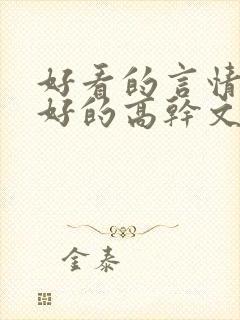 好看的言情
好的高幹文
金泰